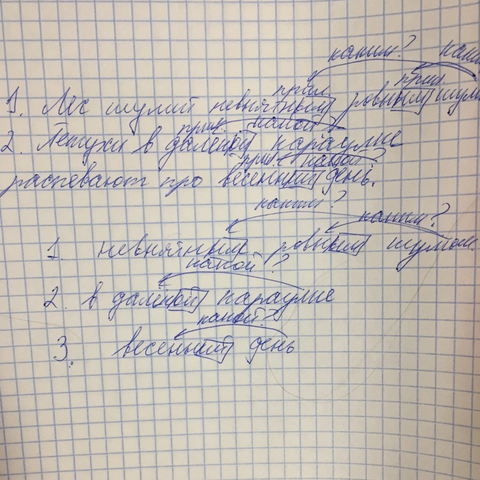 каким? каки
прил. прил
1. Лес шумий невнятным ровным шум
прил какой?
2 Петухи в далёкой караулке
прил какой?
распевают про весенний день.
каким? каким?
1. невнятным ровным шумом.
какой?
2. в далёкой караулке
какой?
3. весенний день